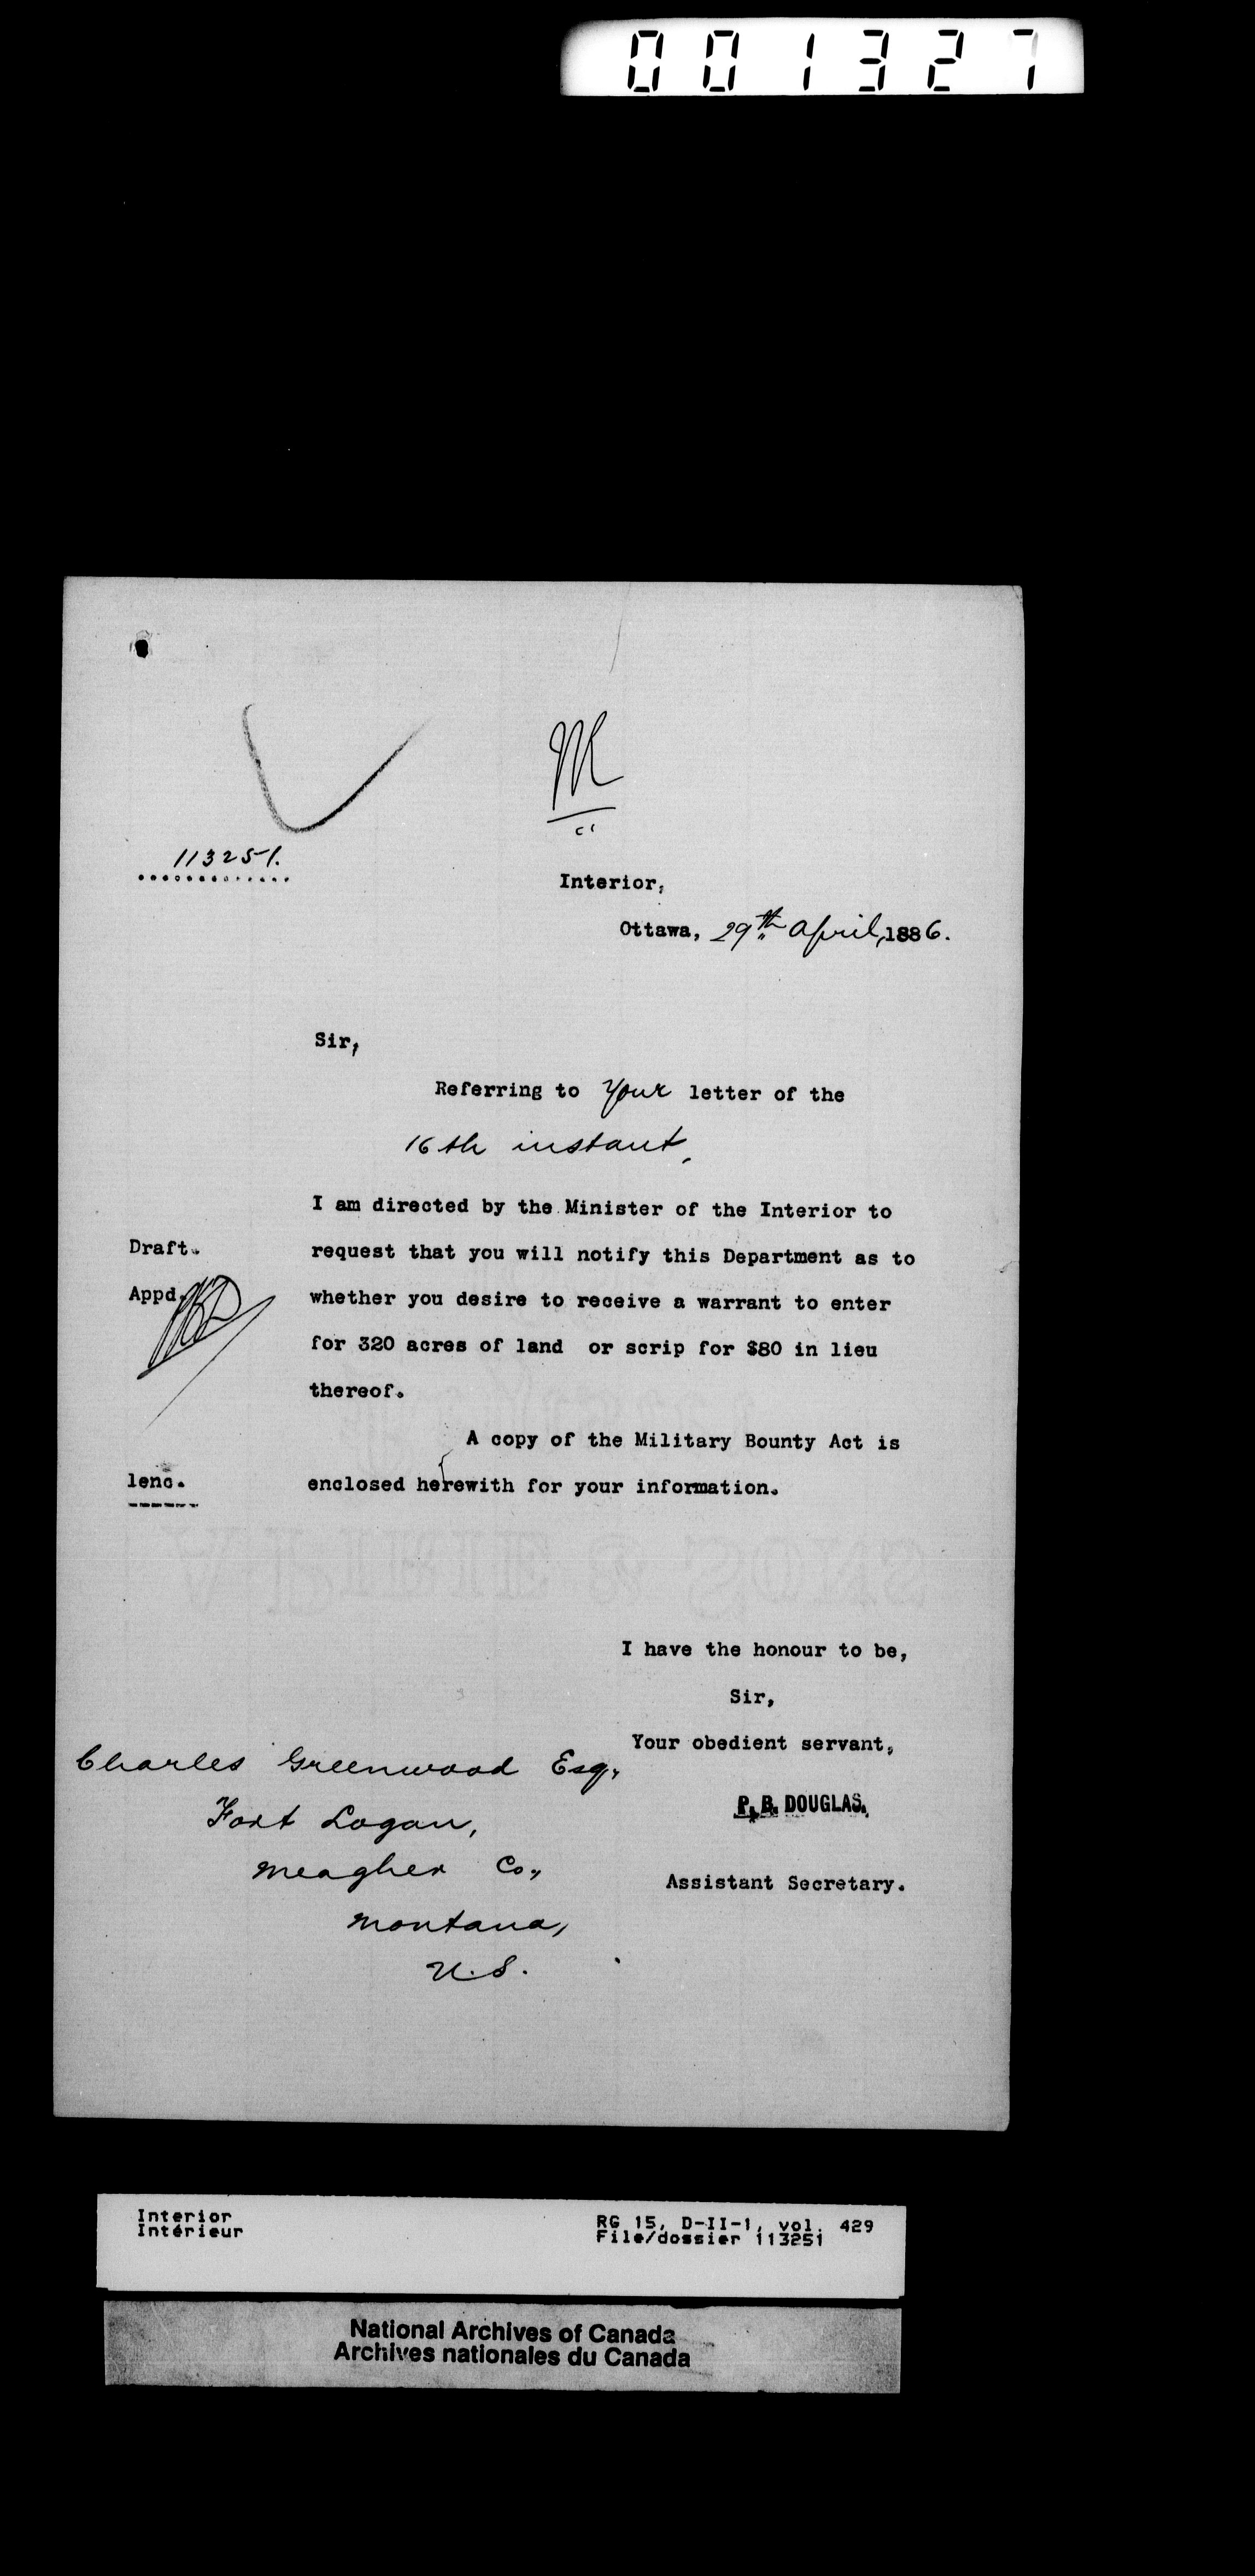 001327
M
113251.
Interior,
Ottawa, 29th April, 1886.
Sir,
Referring to Your letter of the
16th instant,
I am directed by the Minister of the Interior to
Draft.
request that you will notify this Department as to
Appd.
whether you desire to receive a warrant to enter
for 320 acres of land or scrip for $80 in lieu
thereof.
A copy of the Military Bounty Act is
1enc.
enclosed herewith for your information.
A. PIRIE & SONS
I have the honour to be,
Sir,
Your obedient servant,
P. B. DOUGLAS.
Assistant Secretary.
Charles Greenwood Esq.,
Fort Logan,
Meagher Co.,
Montana,
U.S.
Interior
Intérieur
RG 15, D-II-1, vol. 429
File/dossier 113251
National Archives of Canada
Archives nationales du Canada